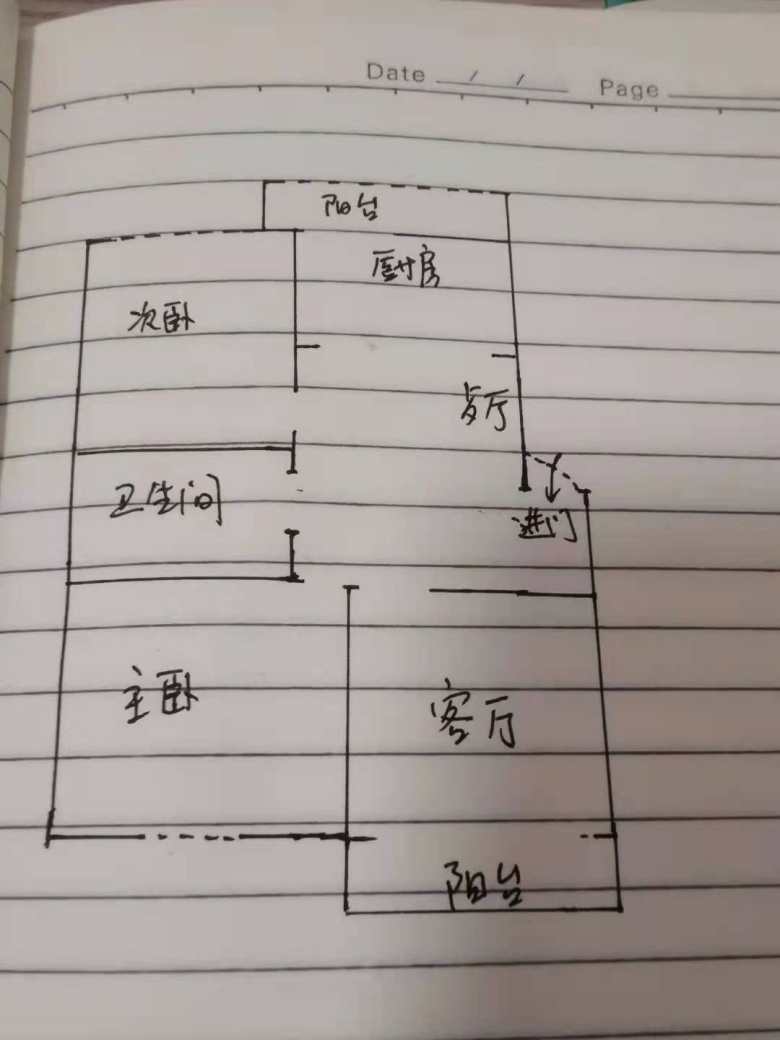 Date / / Page
阳台
厨房
次卧
餐厅
卫生间
进门
主卧
客厅
阳台